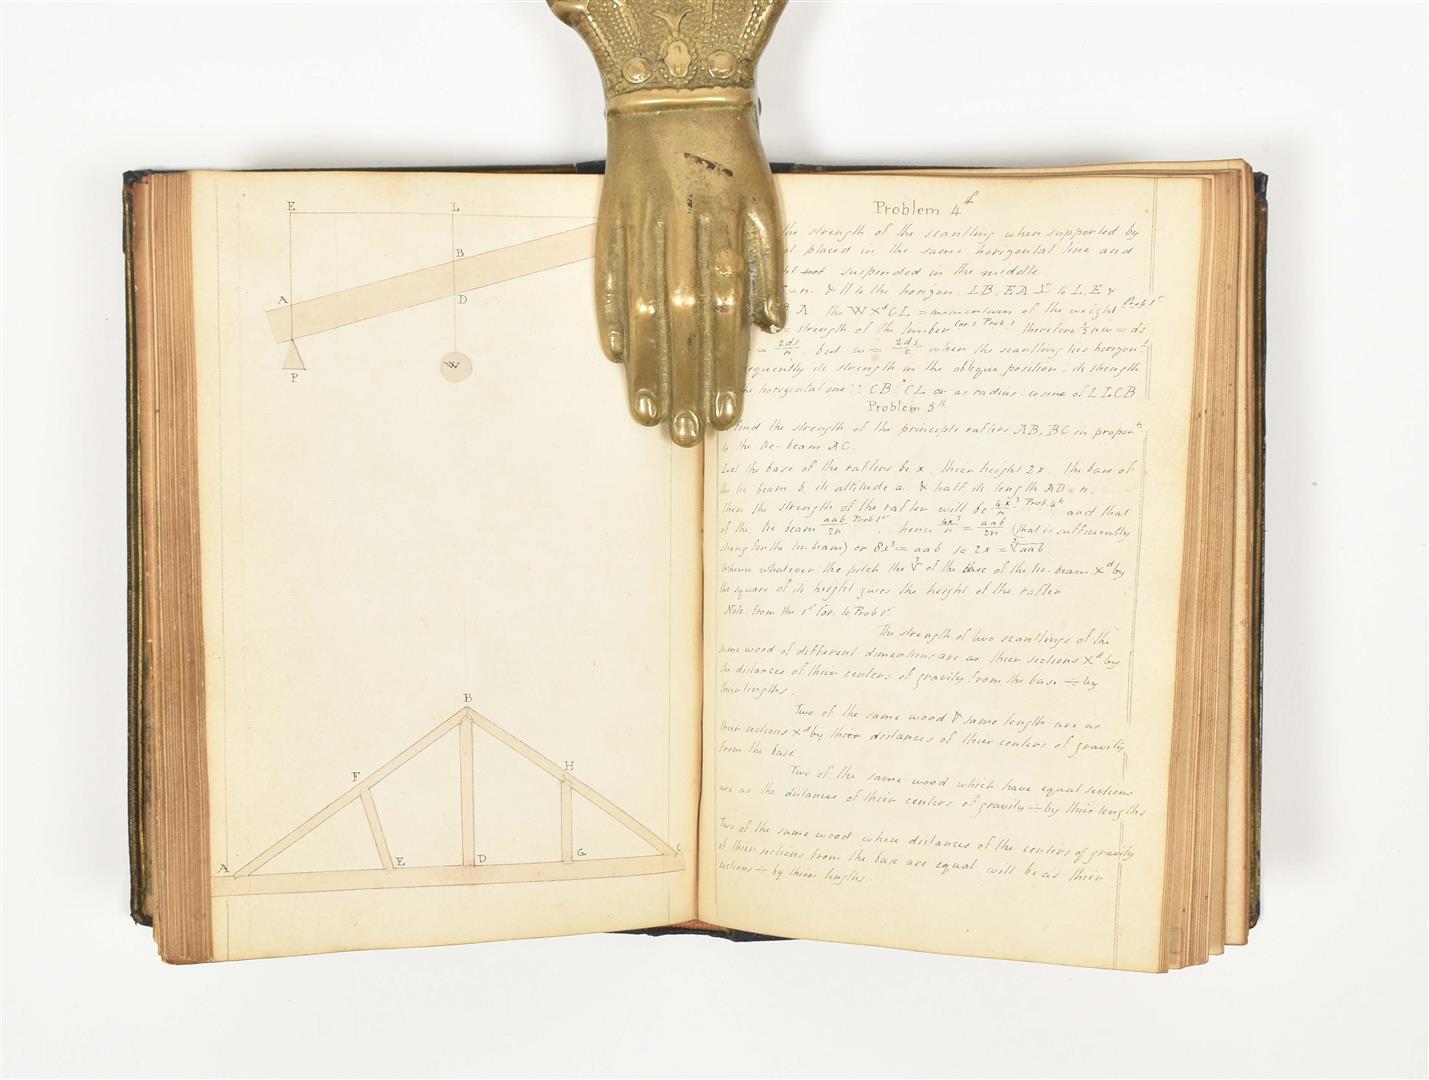 E L
B
A D
P W
B
F H
A E D G C
Problem 4th
the strength of the scantling when supported by
placed in the same horizontal line and
not suspended in the middle
= n. & ll to the horizon. LB, EA to L, E &
A the W Xd CL = momentum of the weight Prob. 1st
= strength of the timber Cor. 1. Prob. 1 therefore ½ n w = ds
= 2ds/n but w = 2ds/c when the scantling lies horizonl
its strength in the oblique position : its strength
horizontal one :: CB : CL or as radius : cosine of L LCB
Problem 5th
Find the strength of the principle rafters AB, BC in proporn
to the tie-beam AC.
Let the base of the rafters be x, thier height 2x. the base of
the tie beam b, its altitude a. & half its length AD = n.
then the strength of the rafter will be 4x³/n Prob. 4th and that
of the tie beam aab/2n Prob 1st hence 4x³/n = aab/2n (that is sufficiently
strong for the tie-beam) or 8x³ = aab so 2x = ∛aab.
Whence whatever the pitch the ∛ of the base of the tie-beam Xd by
the square of its height gives the height of the rafter
Note. from the 1st Cor. to Prob 1st
The strength of two scantlings of the
same wood of different dimentions are as thier sections Xd by
the distances of thier centers of gravity from the base ÷ by
thier lengths.
Two of the same wood & same length are as
thier sections Xd by thier distances of thier centers of gravity
from the base
Two of the same wood which have equal sections
are as the distances of thier centers of gravity ÷ by thier lengths
Two of the same wood whose distances of the centers of gravity
of thier sections from the base are equal will be as thier
sections ÷ by thier lengths.